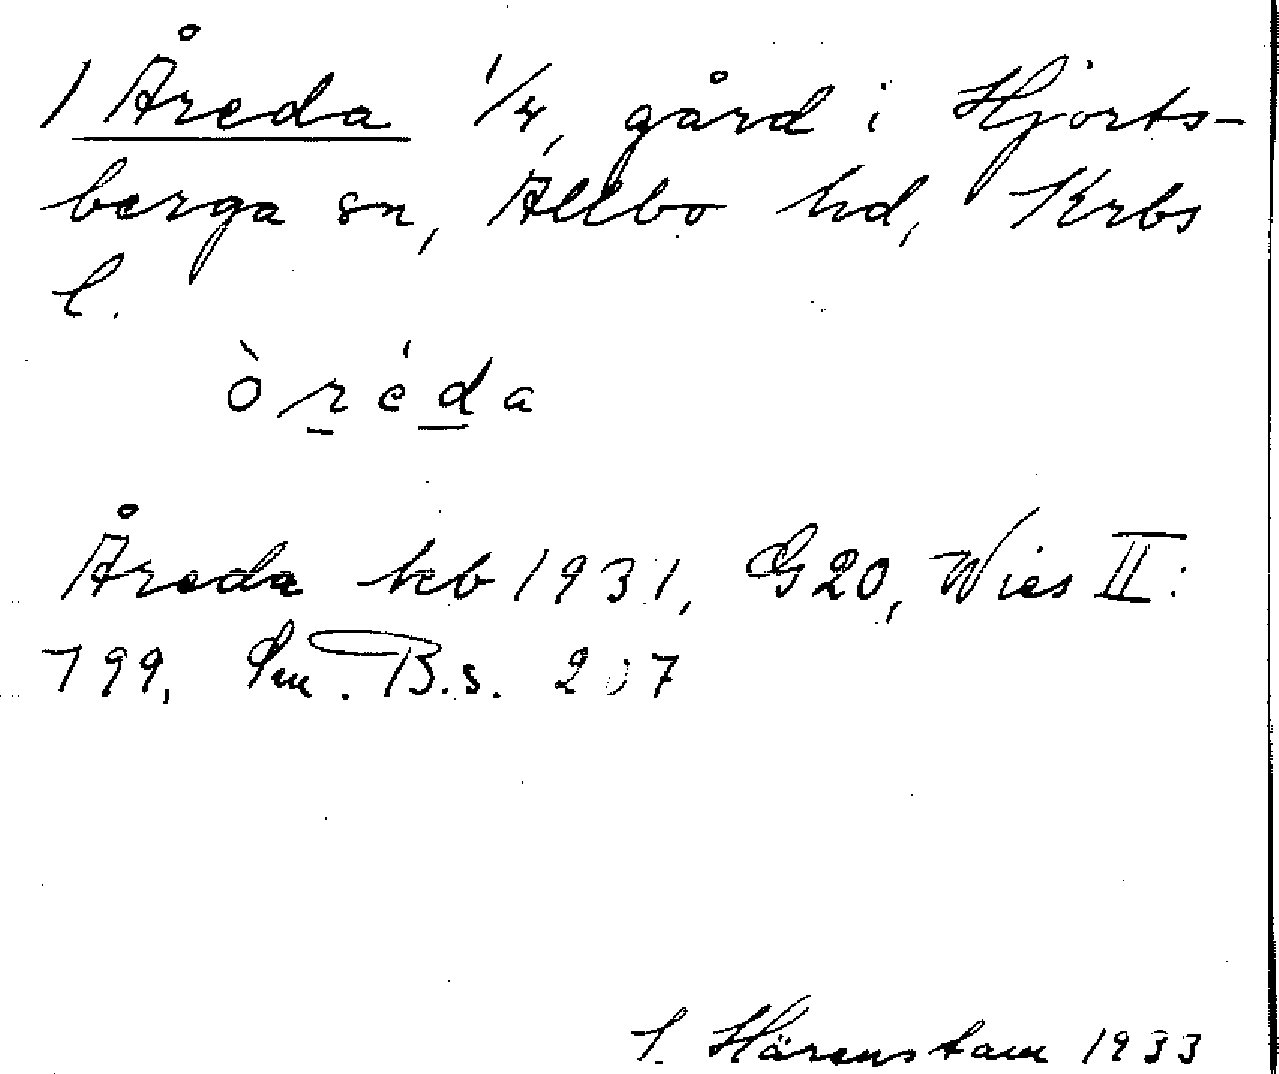 1 Åreda 1/4, gård i Hjorts-
berga sn, Allbo hd, Krbs
l.
òréda
Åreda kb 1931, G20, Wies II:
799, Sm. B.s. 207
S. Härenstam 1933